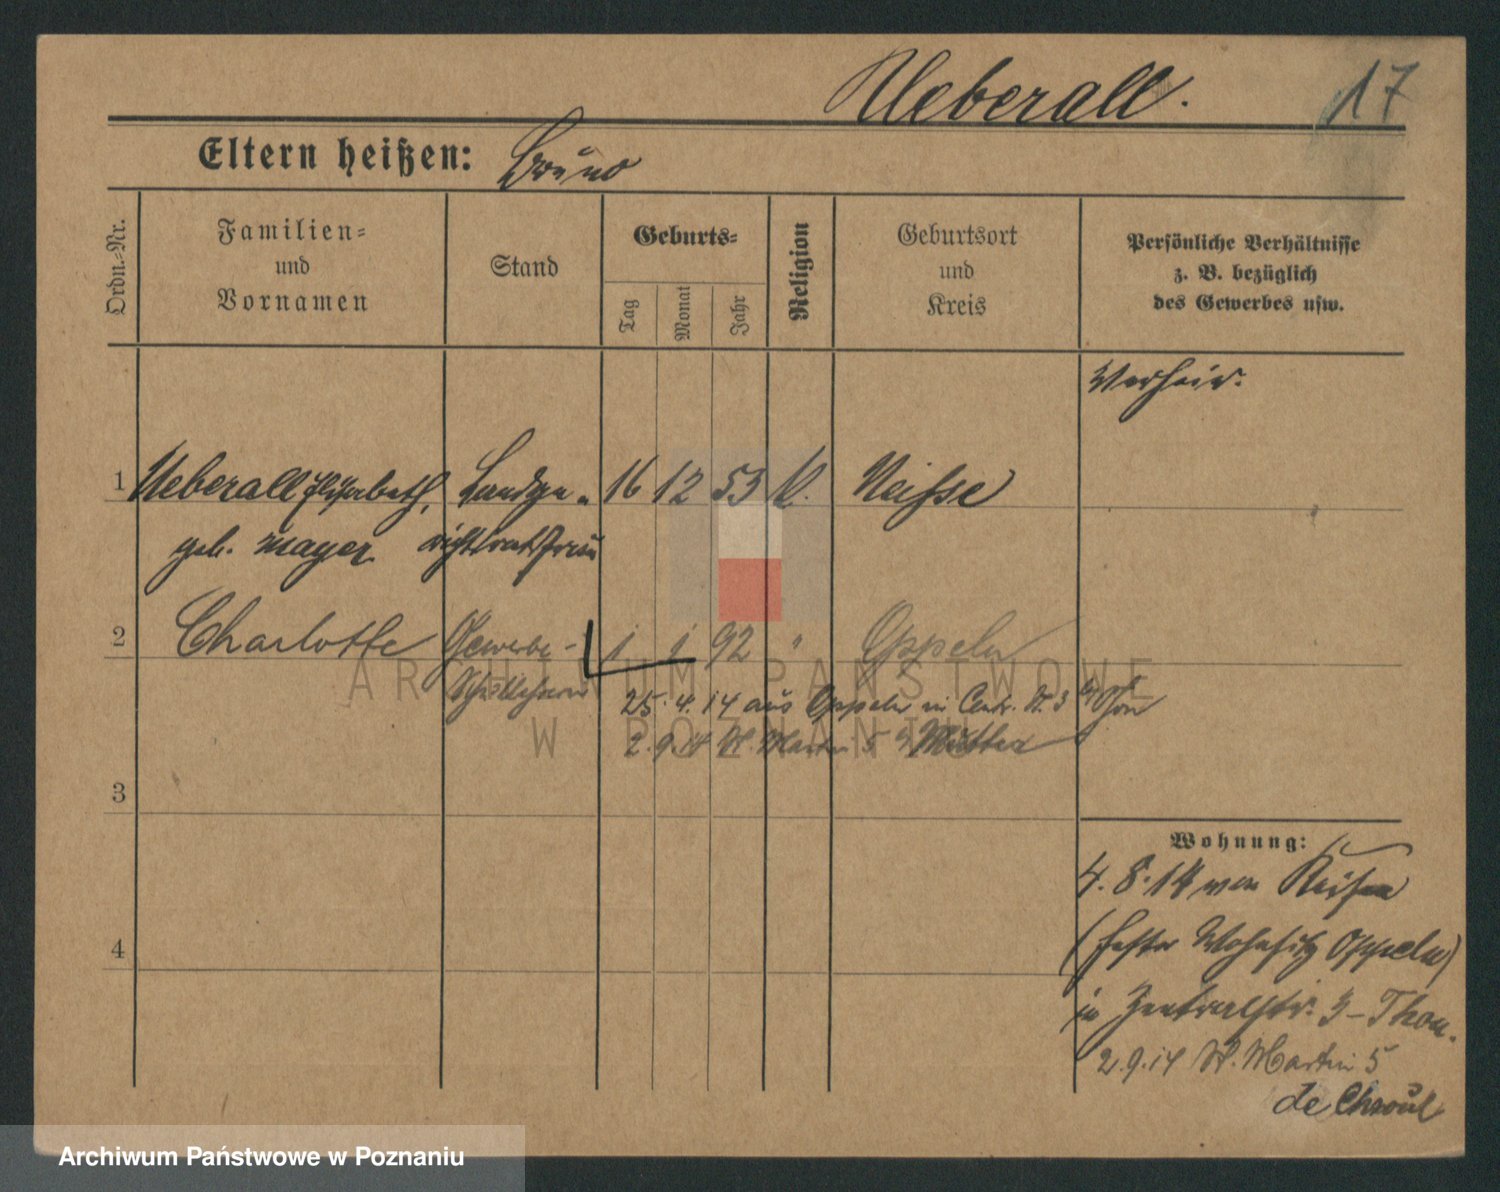 Ueberall. 17
Eltern heißen: Bruno
Ordn.=Nr.
Familien=
und
Vornamen
Stand
Geburts=
Tag
Monat
Jahr
Religion
Geburtsort
und
Kreis
Persönliche Verhältnisse
z. B. bezüglich
des Gewerbes usw.
Verheir.
1 Ueberall Elisabeth, Landge- 16 12 53 K. Neisse
geb. Mayer richtsratsfrau
2 Charlotte Gewerbe- 1 1 92 " Oppeln
Schullehrerin
25.4.14 aus Oppeln in Centr. St. 3
2.9.14 St. Martin 5 b Mutter
3
4
Wohnung:
4.8.14 von Reisen
(fester Wohnsitz Oppeln)
in Zentralstr. 3 - Thon.
2.9.14 St. Martin 5
de Chroul
ARCHIWUM PAŃSTWOWE
W POZNANIU
Archiwum Państwowe w Poznaniu